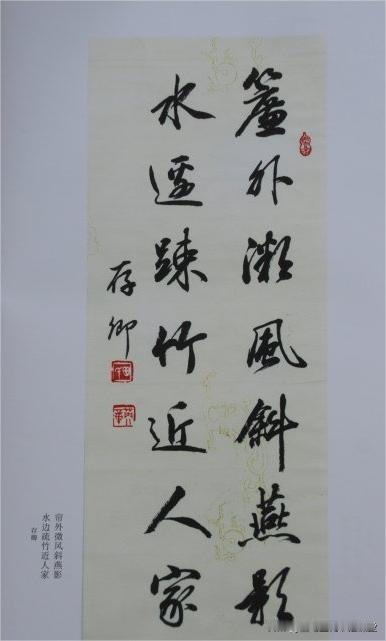 簾外微風斜燕影
水邊踈竹近人家
存卿
帘外微风斜燕影
水边疏竹近人家
存卿